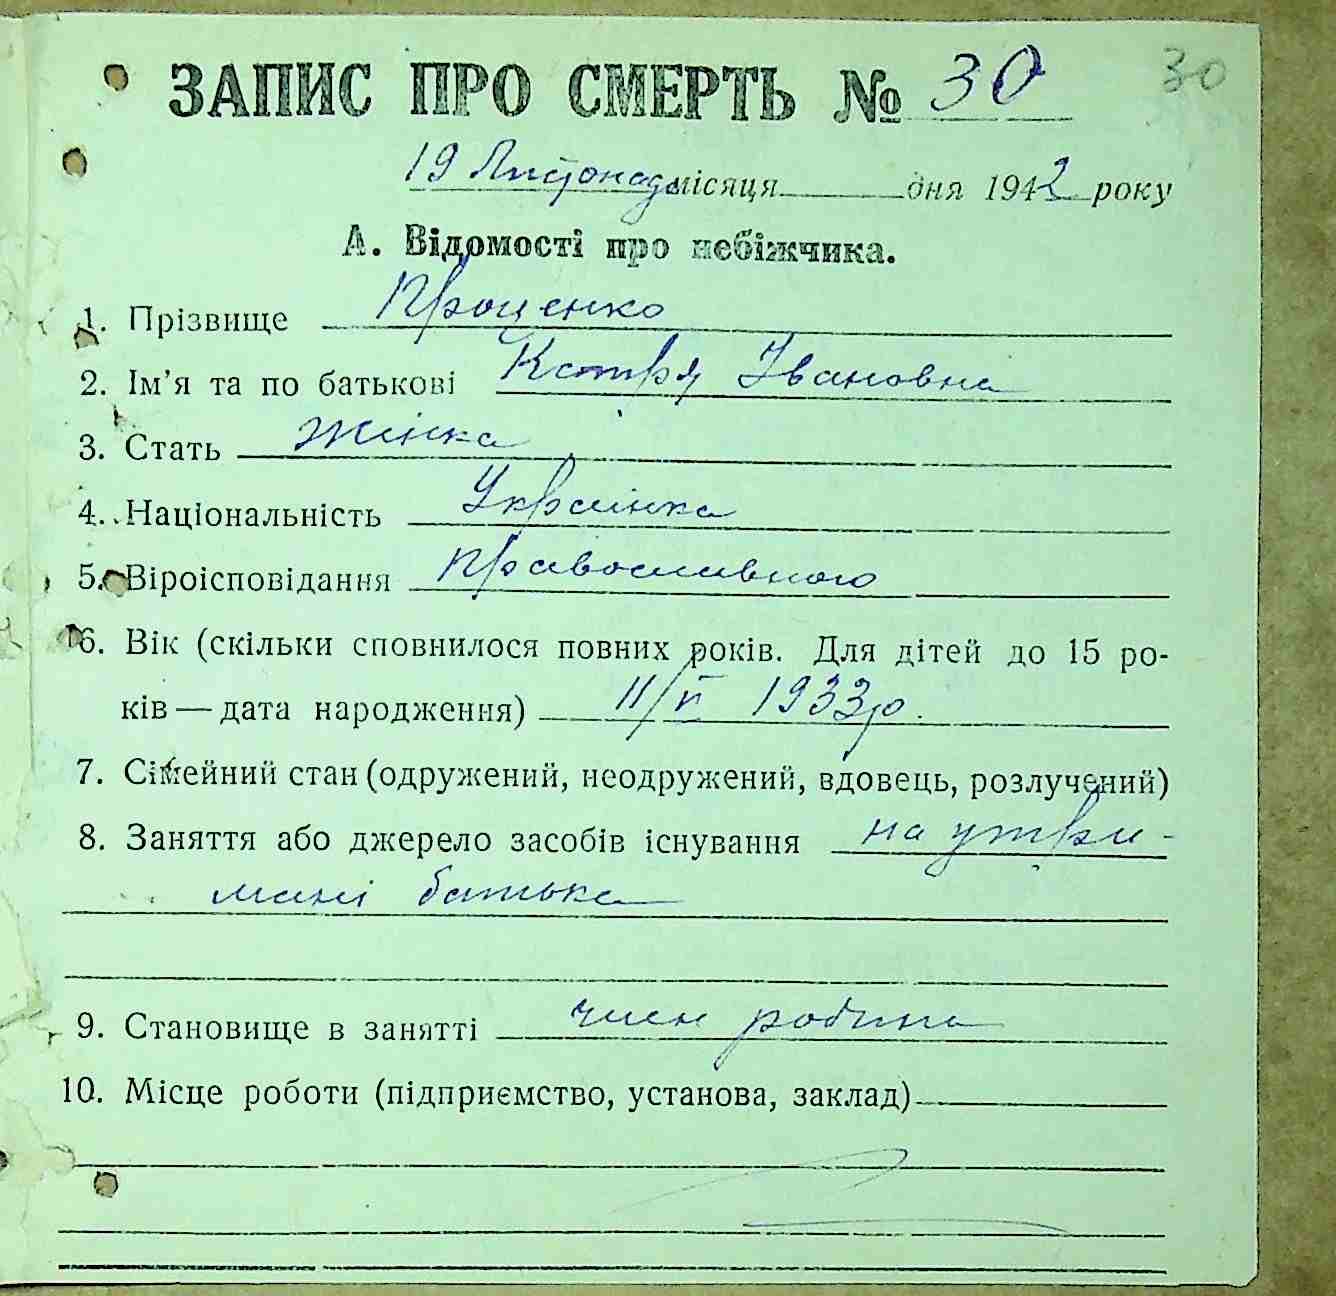 ЗАПИС ПРО СМЕРТЬ № 30 30
19 Листопада місяця дня 1942 року
А. Відомості про небіжчика.
1. Прізвище Проценко
2. Ім'я та по батькові Катря Івановна
3. Стать жінка
4. Національність Українка
5. Віроісповідання православного
6. Вік (скільки сповнилося повних років. Для дітей до 15 ро-
ків — дата народження) 11/V 1933 р.
7. Сімейний стан (одружений, неодружений, вдовець, розлучений)
8. Заняття або джерело засобів існування на утри-
мані батька
9. Становище в занятті член родини
10. Місце роботи (підприємство, установа, заклад)